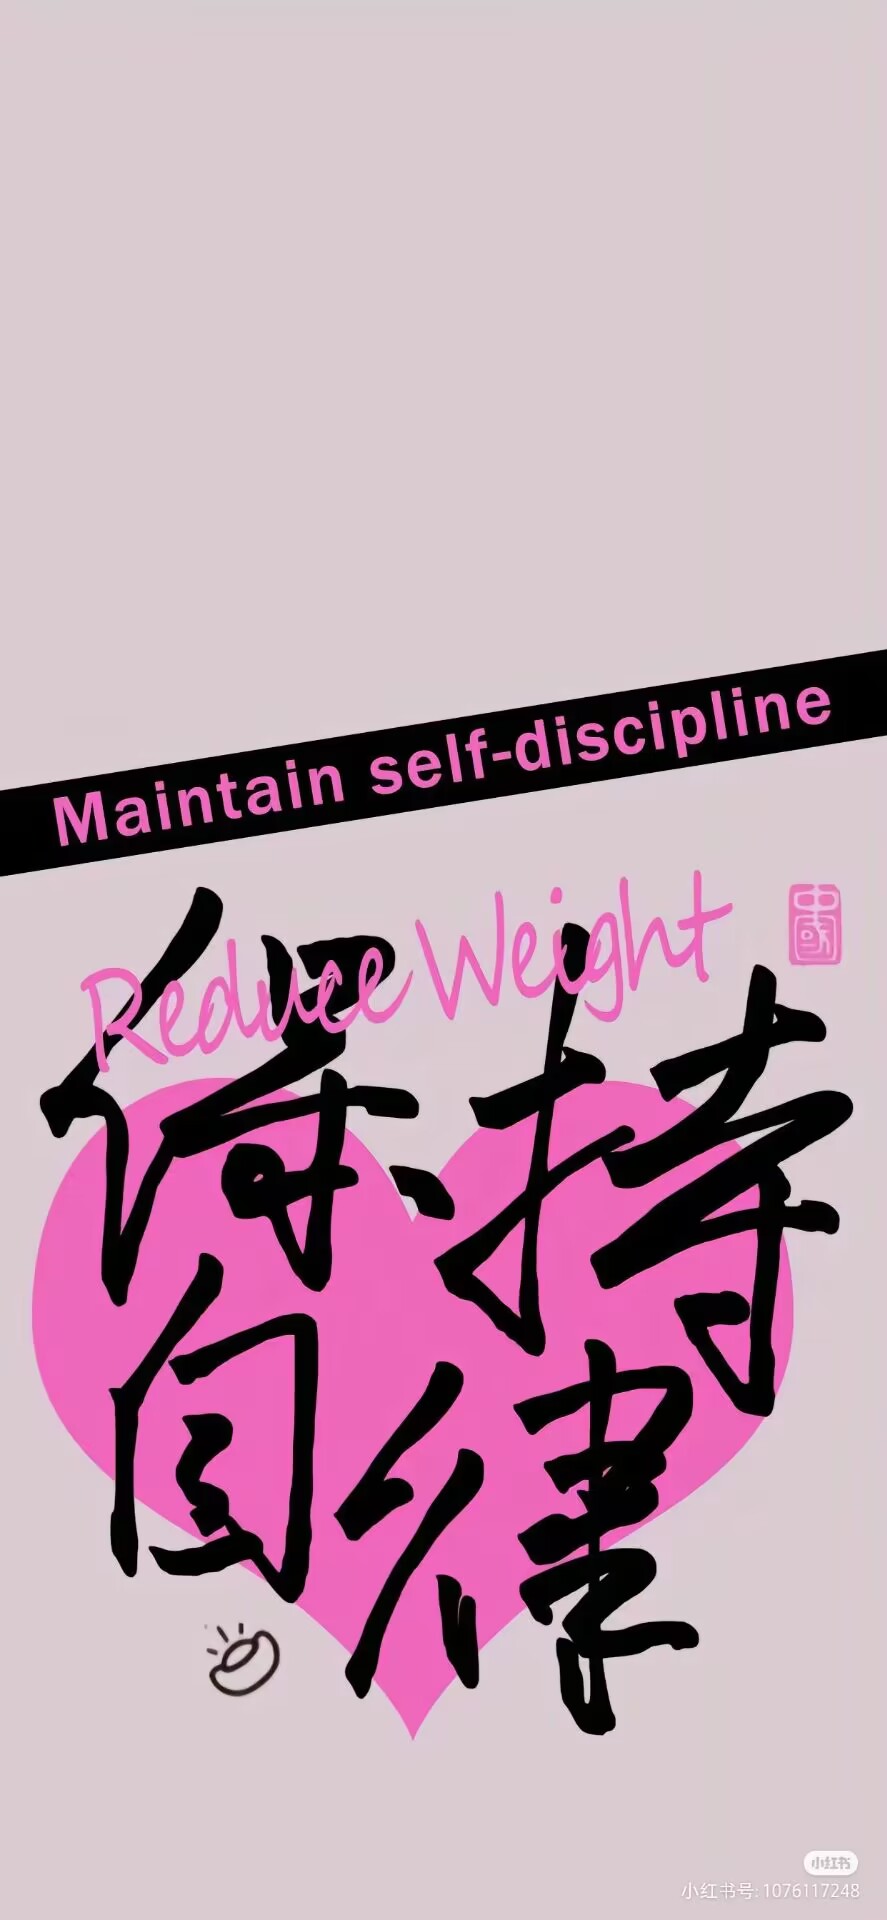 Maintain self-discipline
Reduce Weight
中國
保持
自律
小红书
小红书号: 1076117248